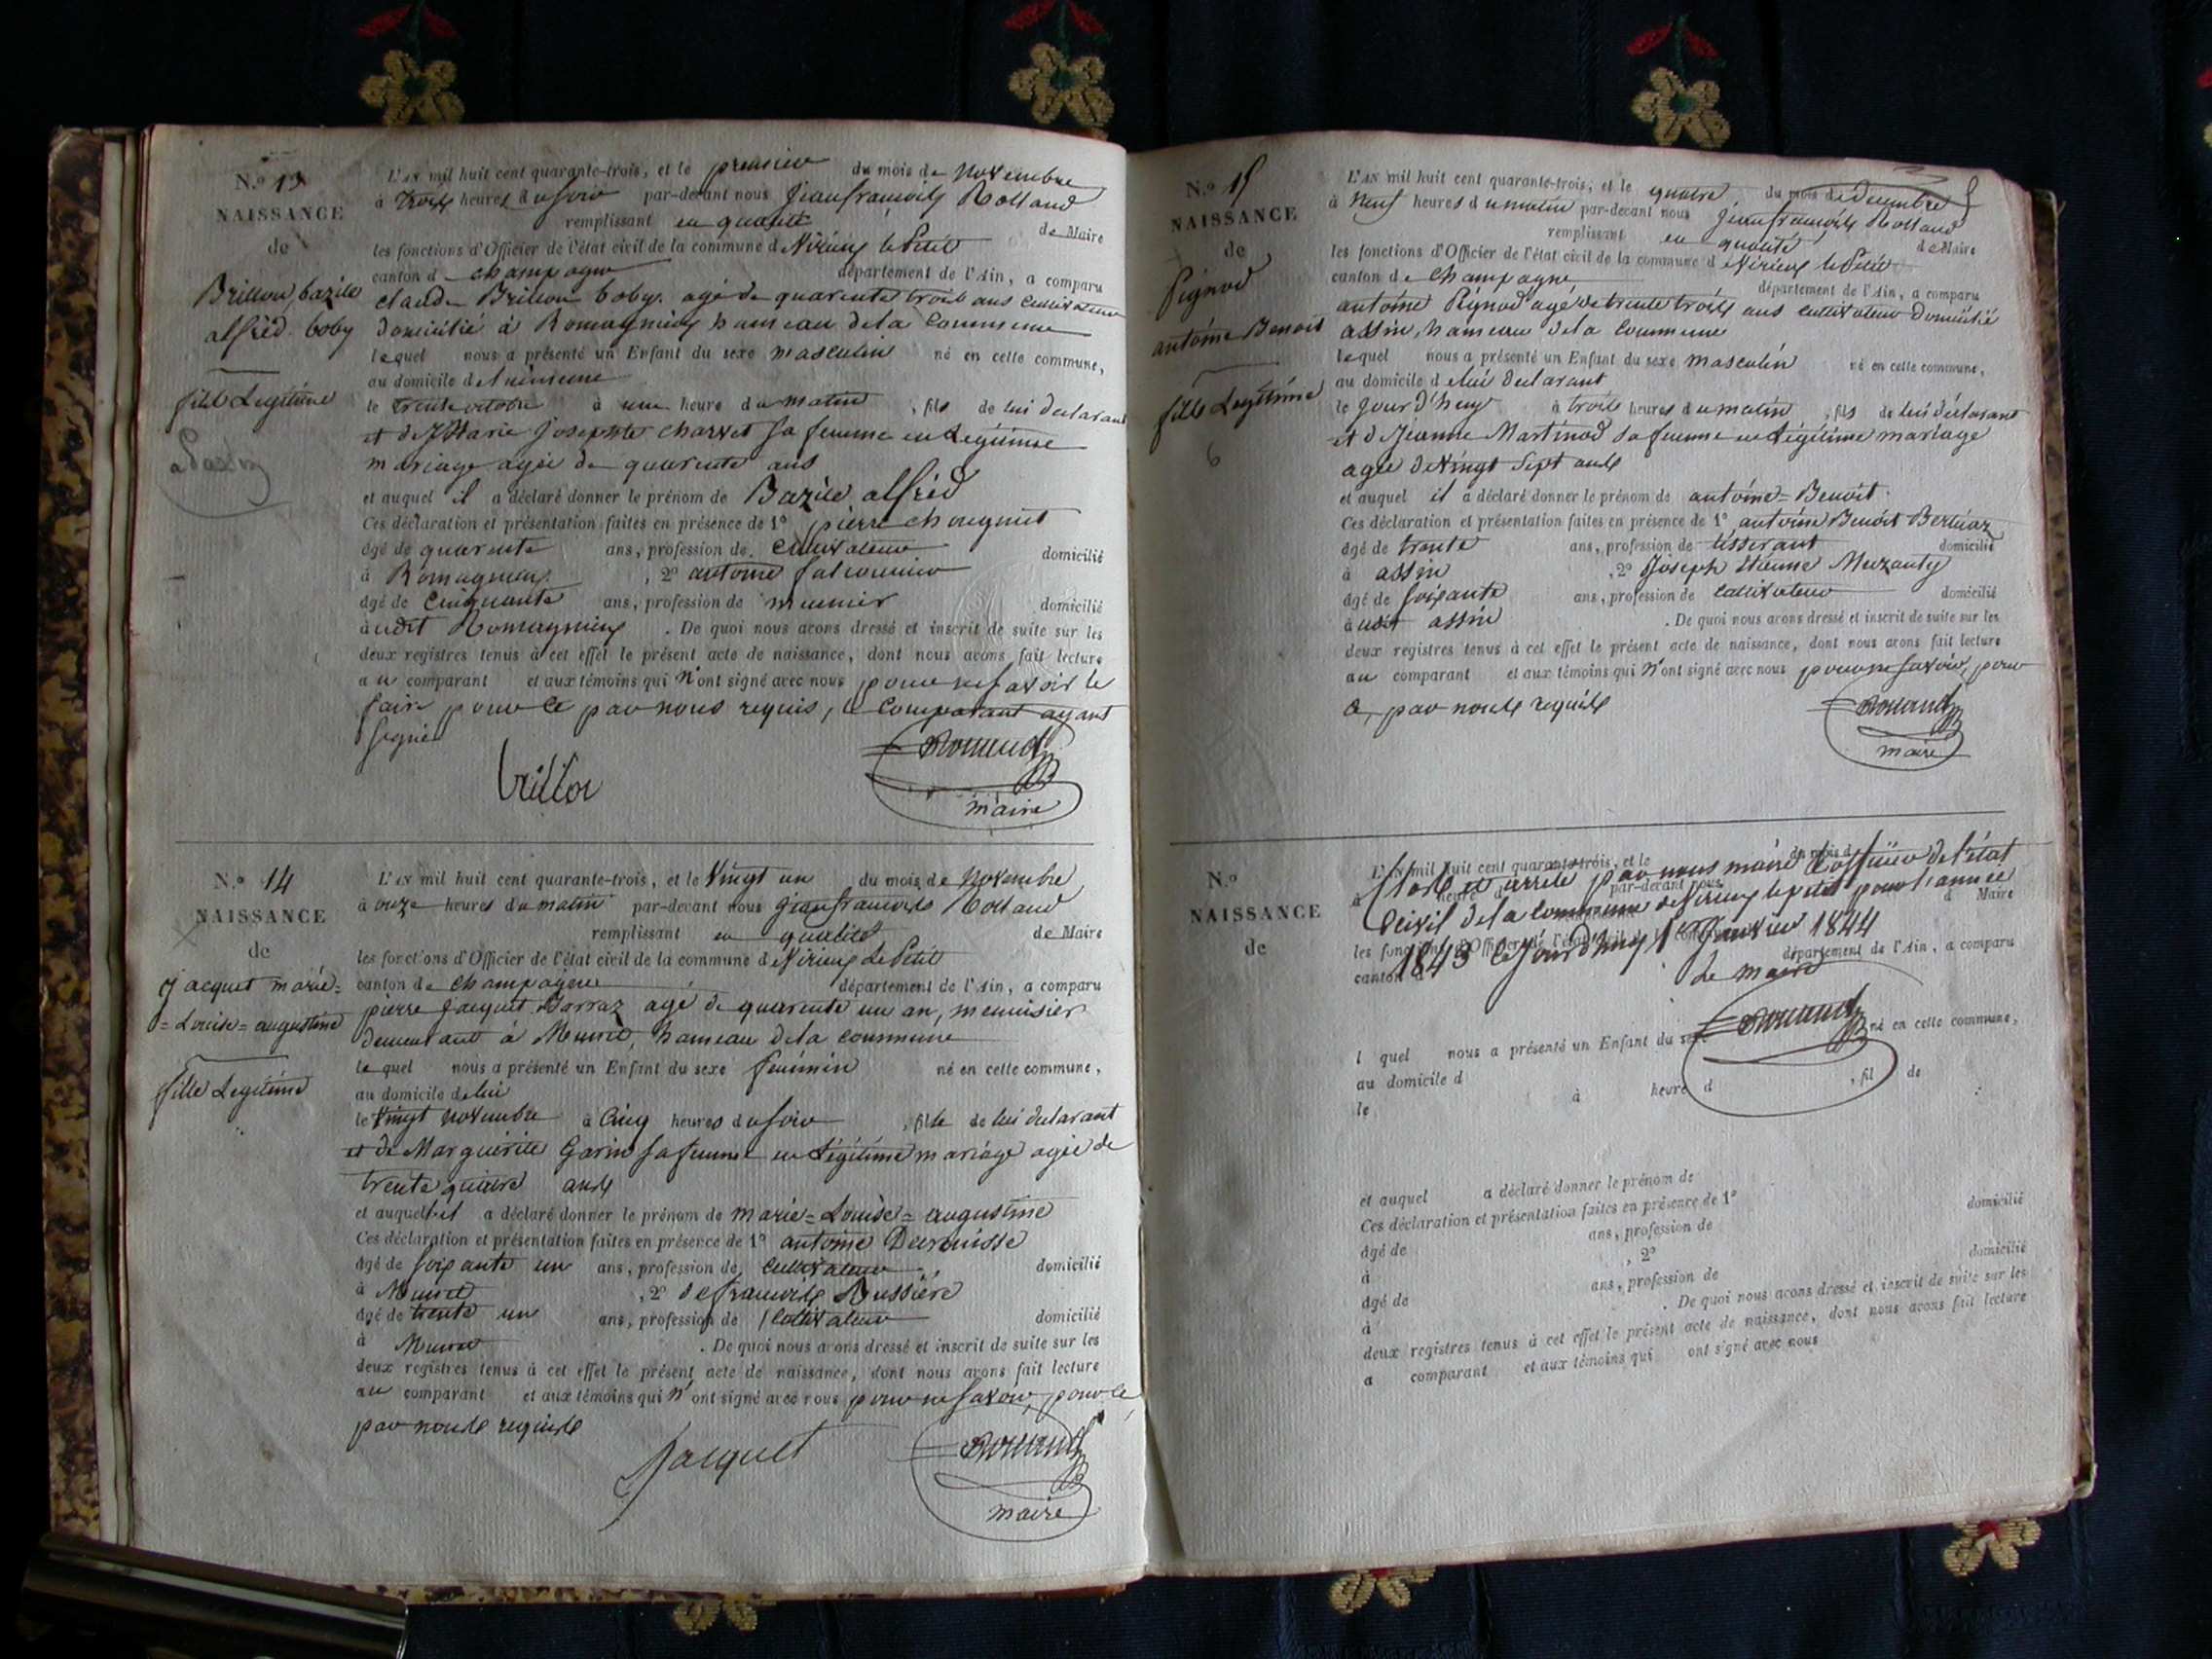 N.º 13
NAISSANCE
de
Brillon, bazile
alfréd boby
fils Legitime
L'AN mil huit cent quarante-trois, et le premier du mois de novembre
à trois heures du soir par-devant nous jean françois Rolland
remplissant en qualité de Maire
les fonctions d'Officier de l'état civil de la commune de Virieux le Petit
canton de champagne département de l'Ain, a comparu
claude Brillon boby. agé de quarente trois ans cultivateur
domicilié à Romagnieux hameau de la Commune
lequel nous a présenté un Enfant du sexe masculin né en cette commune,
au domicile de
le trente octobre à une heure du matin , fils de lui declarant
et de Marie josephte charvet sa femme en Legitime
mariage agée de quarente ans
et auquel il a déclaré donner le prénom de Bazile alfréd
Ces déclaration et présentation faites en présence de 1º pierre
âgé de quarente ans, profession de cultivateur domicilié
à Romagnieux , 2º antoine
âgé de Cinquante ans, profession de meunier domicilié
à udit Romagnieux . De quoi nous avons dressé et inscrit de suite sur les
deux registres tenus à cet effet le présent acte de naissance, dont nous avons fait lecture
au comparant et aux témoins qui n'ont signé avec nous pour ne savoir le
faire pour ce par nous requis, le Comparant ayant
signé
Brillon
Rolland
maire
N.º 14
NAISSANCE
de
jacquet marie=
=Louise=augustine
fille Legitime
L'AN mil huit cent quarante-trois, et le Vingt un du mois de Novembre
à onze heures du matin par-devant nous jean francois Rolland
remplissant en qualité de Maire
les fonctions d'Officier de l'état civil de la commune de Virieux Le Petit
canton de Champagne département de l'Ain, a comparu
pierre jacquet Barraz agé de quarente un an, menuisier
demeurant à Munet, hameau de la commune
lequel nous a présenté un Enfant du sexe féminin né en cette commune,
au domicile de lui
le Vingt novembre à Cinq heures du soir , fille de lui declarant
et de Marguérite Garin sa femme en Légitime mariage agée de
trente quatre ans
et auquel il a déclaré donner le prénom de marie=Louise=augustine
Ces déclaration et présentation faites en présence de 1º antoine
âgé de soixante un ans, profession de cultivateur domicilié
à Munet , 2º françois Bussiére
âgé de trente un ans, profession de Cultivateur domicilié
à Munet . De quoi nous avons dressé et inscrit de suite sur les
deux registres tenus à cet effet le présent acte de naissance, dont nous avons fait lecture
au comparant et aux témoins qui n'ont signé avec nous pour ne savoir, pour ce
par nous requis
Jacquet
Rolland
maire
N.º 15
NAISSANCE
de
Pignod
antoine Benoit
fils Legitime
6
L'AN mil huit cent quarante-trois, et le quatre du mois de decembre
à Neuf heures du matin par-devant nous jean francois Rolland
remplissant en qualité de Maire
les fonctions d'Officier de l'état civil de la commune de Virieux le Petit
canton de Champagne département de l'Ain, a comparu
antoine Pignod agé de trente trois ans cultivateur domicilié
assin, hameau de la Commune
lequel nous a présenté un Enfant du sexe masculin né en cette commune,
au domicile de lui declarant
le jourd'huy à trois heures du matin , fils de lui déclarant
et de Jeanne Martinod sa femme en Légitime mariage
agée de Vingt Sept ans
et auquel il a déclaré donner le prénom de antoine=Benoit
Ces déclaration et présentation faites en présence de 1º antoine Benoit Berlioz
âgé de trente ans, profession de tisserant domicilié
à assin , 2º Joseph Etienne
âgé de soixante ans, profession de Cultivateur domicilié
à udit assin . De quoi nous avons dressé et inscrit de suite sur les
deux registres tenus à cet effet le présent acte de naissance, dont nous avons fait lecture
au comparant et aux témoins qui n'ont signé avec nous pour ne savoir, pour
ce, par nous requis
Rolland
maire
N.º
NAISSANCE
de
L'AN mil huit cent quarante-trois, et le du mois d
Clos et arrété par nous maire Officier de l'état
à heure d par-devant nous
Civil de la Commune de Virieux le petit pour l'année
d Maire
les fonctions d'Officier de l'état civil de la commune
1843 Cejourd'huy 1er Janvier 1844
canton d département de l'Ain, a comparu
Le maire
Rolland
l quel nous a présenté un Enfant du sexe né en cette commune,
au domicile d
le à heure d , fil de
et auquel a déclaré donner le prénom de
Ces déclaration et présentation faites en présence de 1º
âgé de ans, profession de domicilié
à , 2º
âgé de ans, profession de domicilié
à . De quoi nous avons dressé et inscrit de suite sur les
deux registres tenus à cet effet le présent acte de naissance, dont nous avons fait lecture
a comparant et aux témoins qui ont signé avec nous